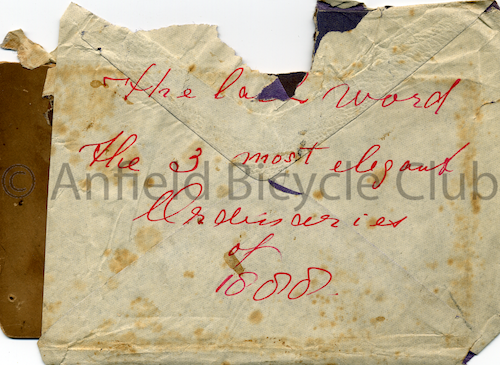 The last word
The 3 most elegant
© Anfield Bicycle Club
Ordinaries
of
1888.